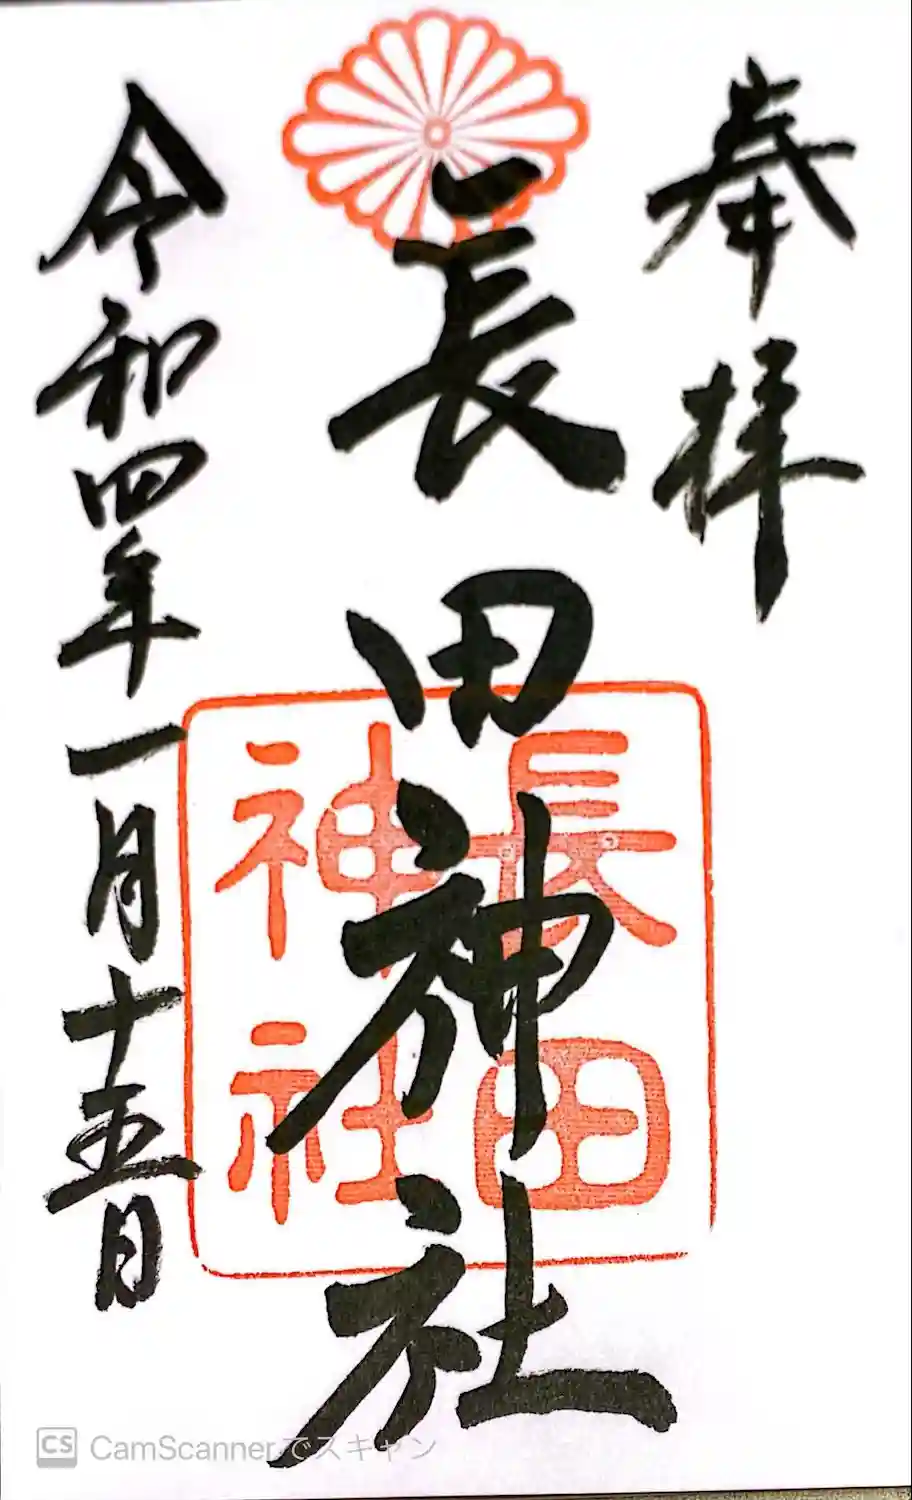 奉拝
長田神社
長田
神社
令和四年一月十五日
CS CamScannerでスキャン